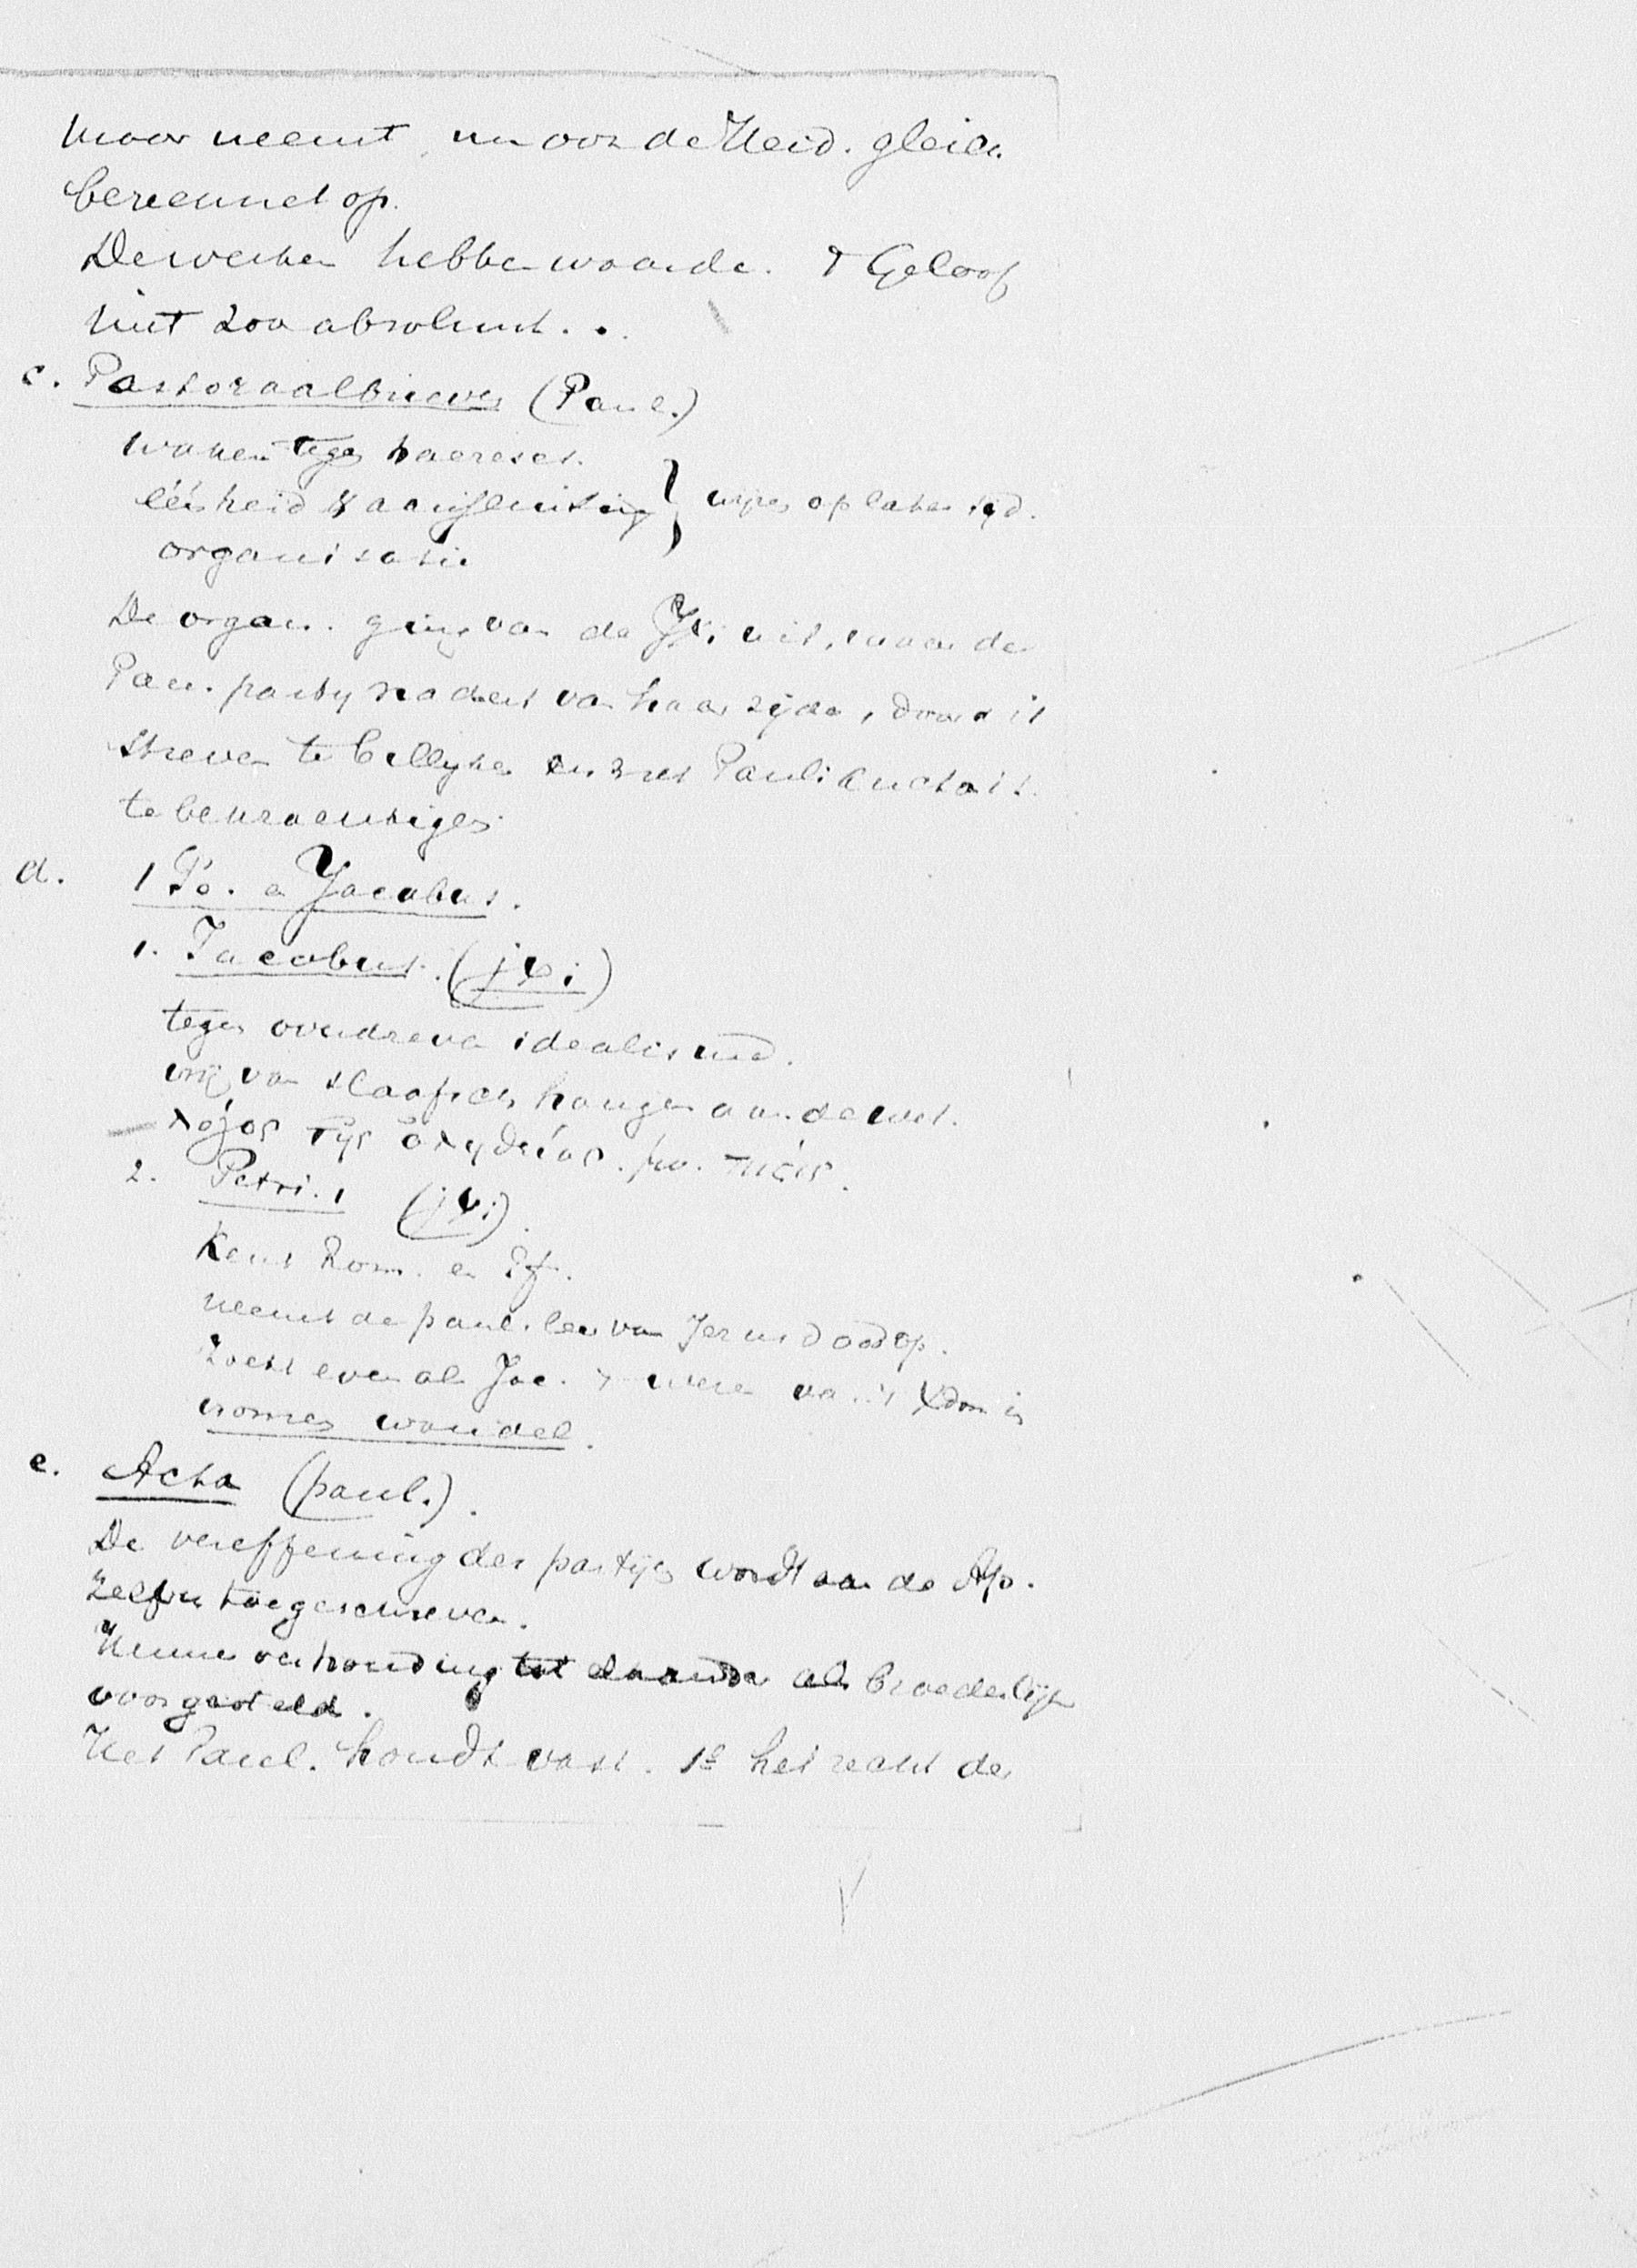 maar neemt nu ook de Heid. gelei.
berekend op.
De werken hebben waarde. 't Geloof
niet zoo absoluut..
c. Pastoraalbrieven (Paul.)
waken tegen haereses.
éénheid & aansluiting } wijzen op later tijd.
organisatie
De organ. ging van de JXi uit, maar de
Paul. partij nadert van haar zijde, door dit
streven te billijken en met Pauli auctorit.
te bekrachtigen.
d. 1 Pe. en Jacobus.
1. Jacobus. (jXi)
tegen overdreven idealisme.
vrij van slaafsch hangen aan de wet.
λόγος τῆς ἀληθείας. πίστις.
2. Petri. 1 (jXi).
Kent Rom. en Ef.
neemt de paul. leer van Jezus dood op.
Zoekt even als Jac. 't wezen van 't Xdom in
vromen wandel.
e. Acta (paul.).
De vereffening der partijen wordt aan de Ap.
zelven toegeschreven.
Hunne verhouding tot elkander als broederlijk
voorgesteld.
Het Paul. houdt vast. 1e het recht der